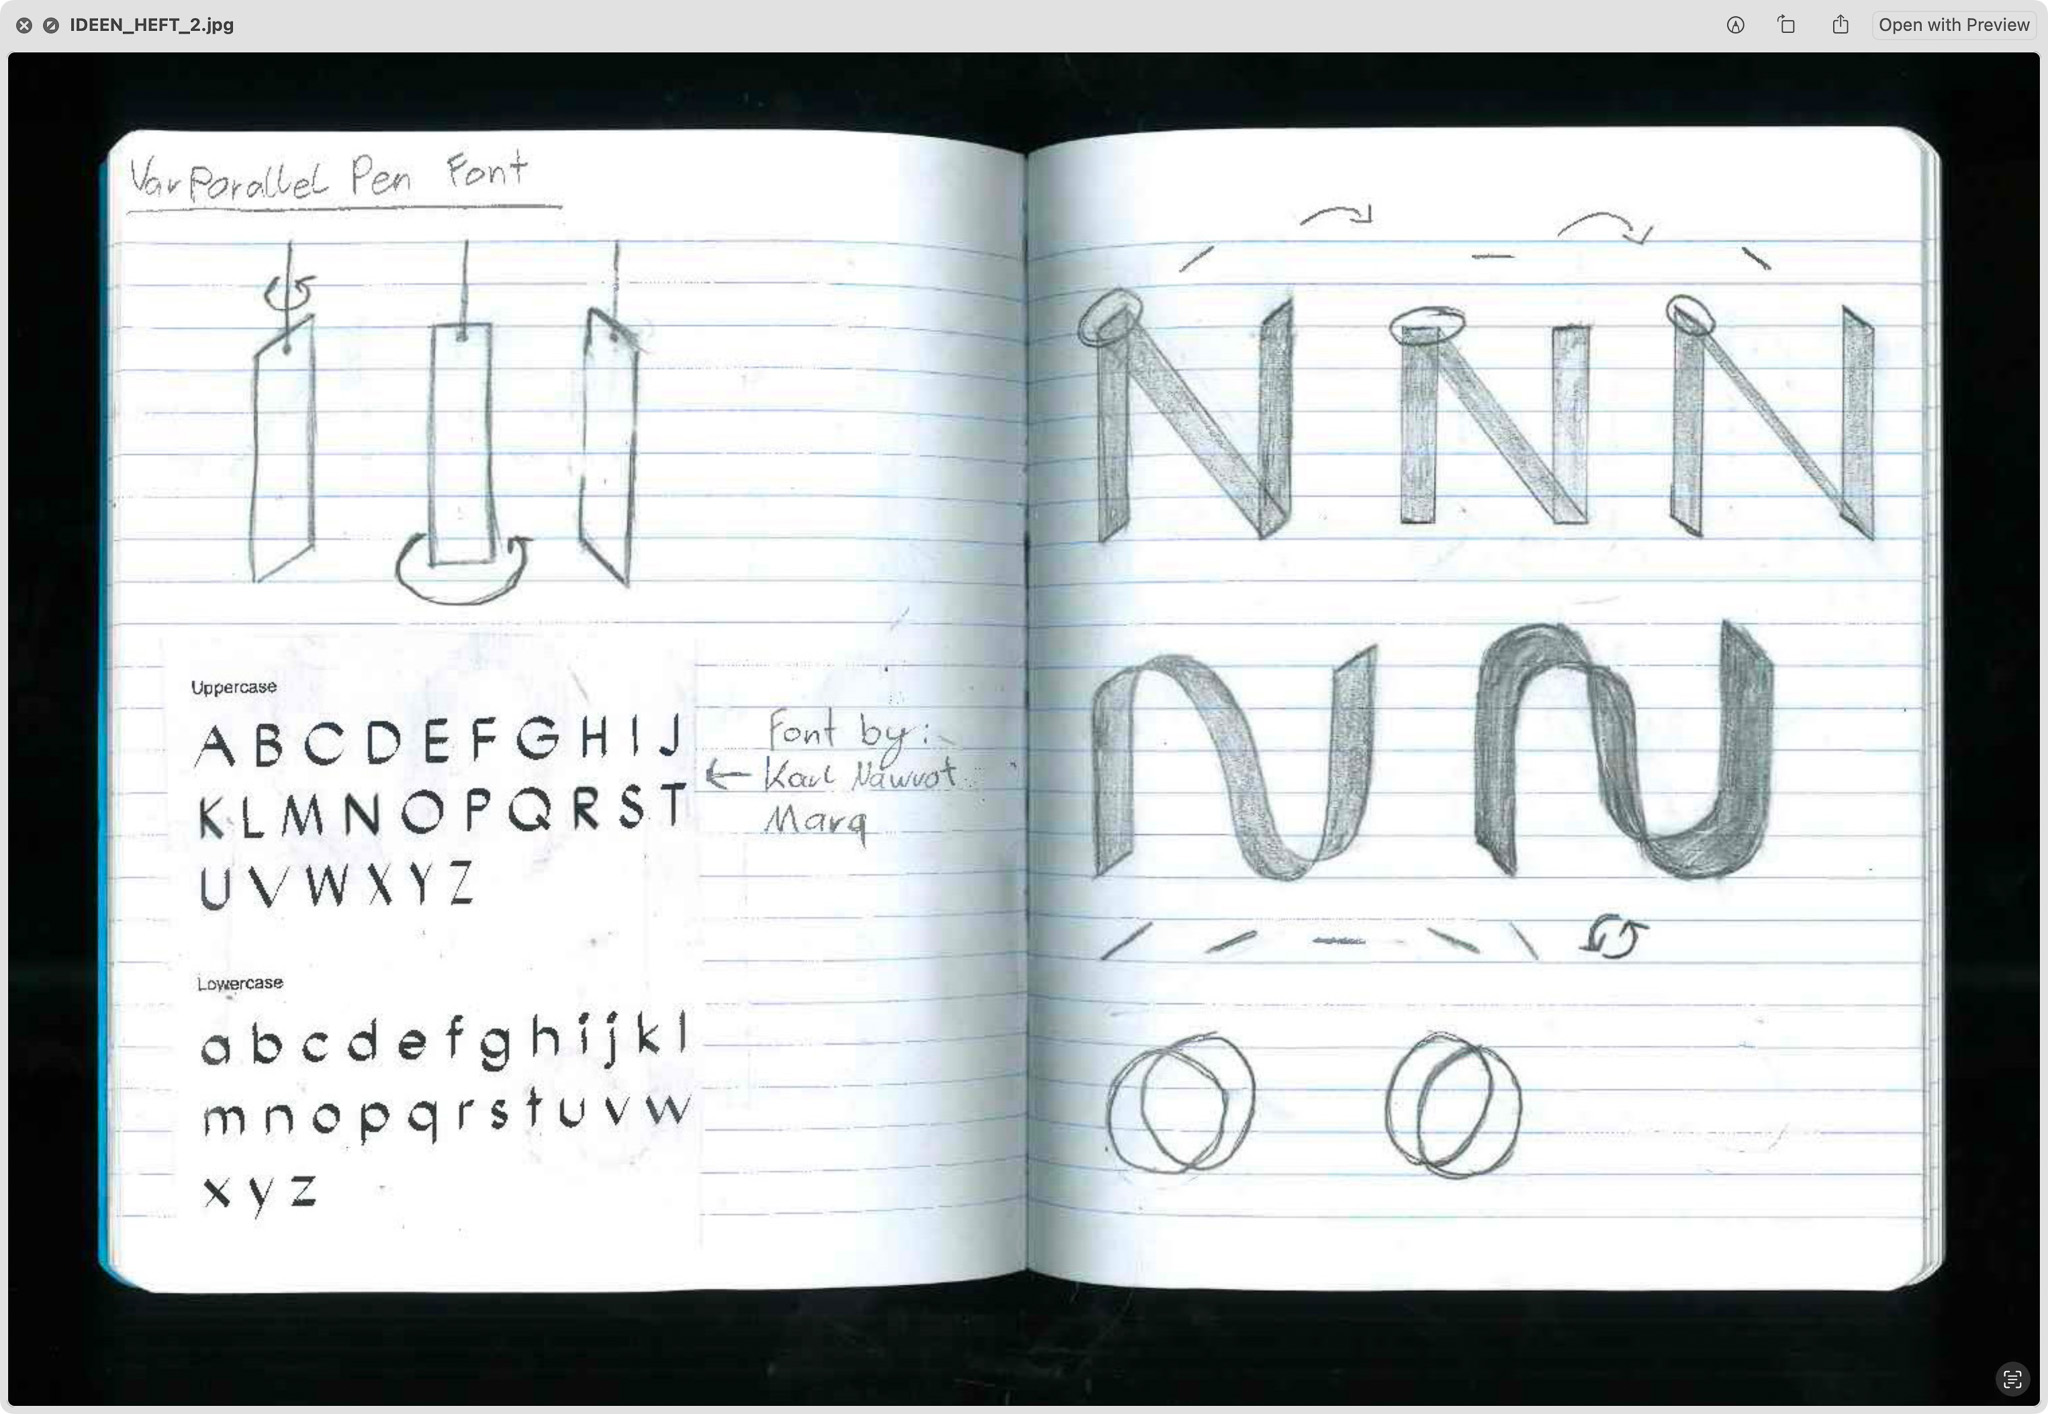 IDEEN_HEFT_2.jpg
Open with Preview
VarParallel Pen Font
Uppercase
A B C D E F G H I J
K L M N O P Q R S T
U V W X Y Z
Font by:
Karl Nawrot
Marq
Lowercase
a b c d e f g h i j k l
m n o p q r s t u v w
x y z
N N N
N N